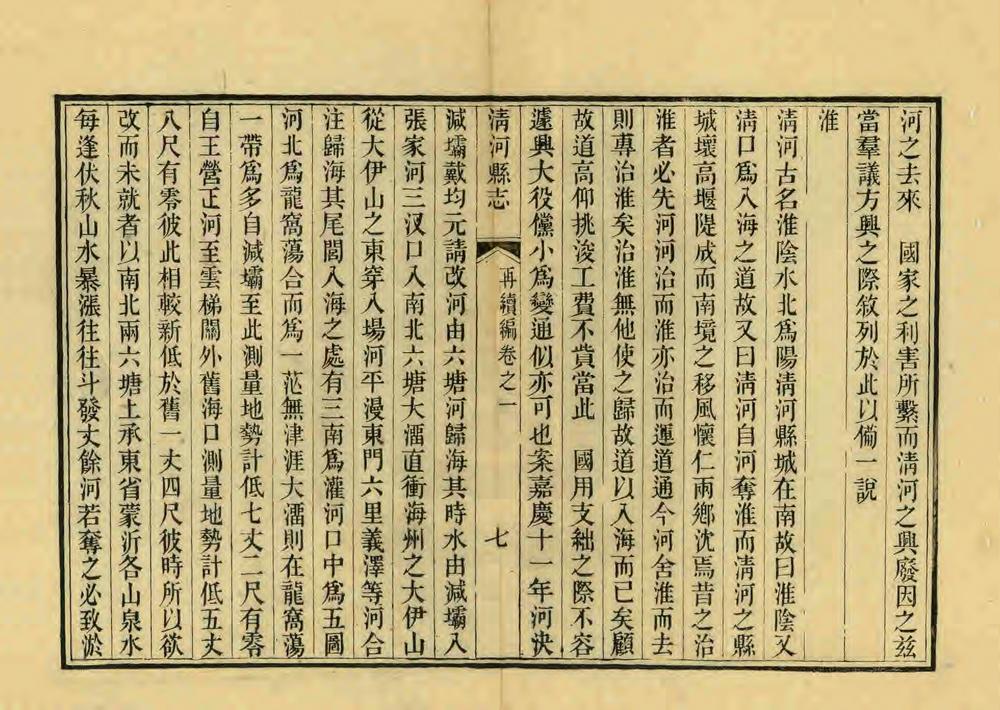 河之去來　國家之利害所繫而淸河之興廢因之玆
當羣議方興之際敘列於此以僃一說
淮
淸河古名淮陰水北爲陽淸河縣城在南故曰淮陰又
淸口爲入海之道故又曰淸河自河奪淮而淸河之縣
城壞高堰隄成而南境之移風懷仁兩鄉沈焉昔之治
淮者必先河河治而淮亦治而運道通今河舍淮而去
則專治淮矣治淮無他使之歸故道以入海而已矣顧
故道高仰挑浚工費不貲當此　國用支絀之際不容
遽興大役儻小爲變通似亦可也案嘉慶十一年河決
淸河縣志　再續編卷之一　七
減壩戴均元請改河由六塘河歸海其時水由減壩入
張家河三汊口入南北六塘大澑直衝海州之大伊山
從大伊山之東穿入場河平漫東門六里義澤等河合
注歸海其尾閭入海之處有三南爲灌河口中爲五圖
河北爲龍窩蕩合而爲一茫無津涯大澑則在龍窩蕩
一帶爲多自減壩至此測量地勢計低七丈二尺有零
自王營正河至雲梯關外舊海口測量地勢計低五丈
八尺有零彼此相較新低於舊一丈四尺彼時所以欲
改而未就者以南北兩六塘上承東省蒙沂各山泉水
每逢伏秋山水暴漲往往斗發丈餘河若奪之必致淤